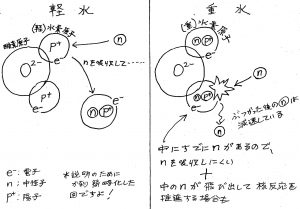 軽水
(軽)水素原子
酸素原子
P+
O2-
e-
n
nを吸収して……
P+
e-
n P+
e-
e-:電子
n:中性子
P+:陽子
*説明のために
かなり簡略化した
図ですよ!
重水
(重)水素原子
n P+
O2-
e-
n P+
e-
n
ぶつかった後のnは
減速している
中にすでにnがあるので、
nを吸収しにくい
+
中のnが飛び出して核反応を
推進する場合も